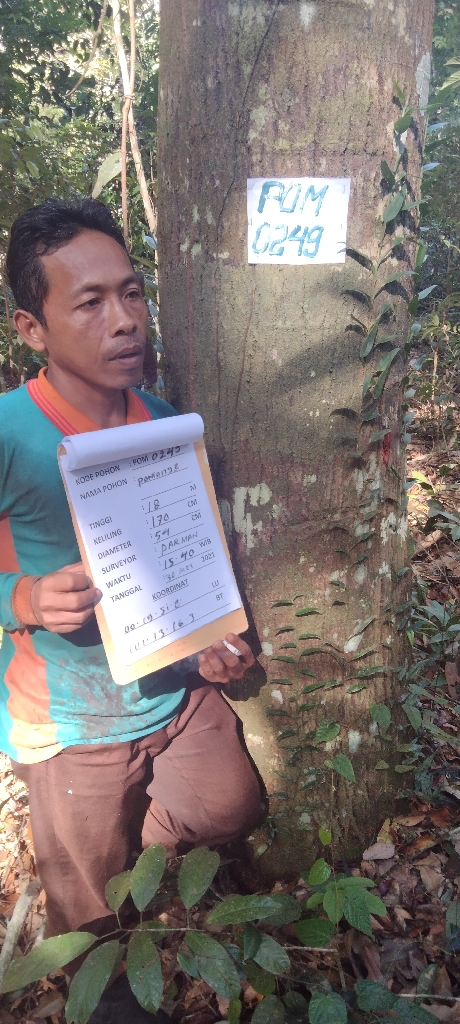 POM
0249
KODE POHON : POM 0249
NAMA POHON :
TINGGI : 18 M
KELILING : 170 CM
DIAMETER : 54 CM
SURVEYOR : DARMAN
WAKTU : 15:40 WIB
TANGGAL : 2021
KOORDINAT
LU
BT